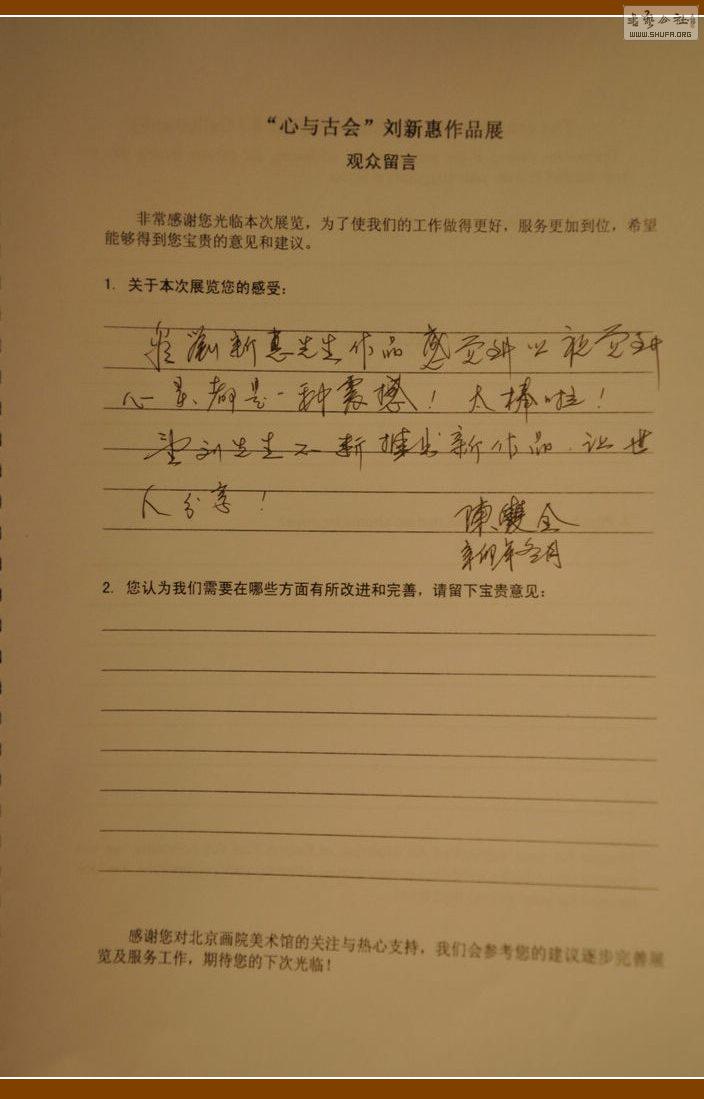 书艺公社
WWW.SHUFA.ORG
“心与古会”刘新惠作品展
观众留言
非常感谢您光临本次展览，为了使我们的工作做得更好，服务更加到位，希望
能够得到您宝贵的意见和建议。
1. 关于本次展览您的感受：
劉新惠先生作品感觉
心灵都是一种震撼！太棒啦！
望刘先生不断推出新作品.让世
人分享！
陳雙全
辛卯年冬月
2. 您认为我们需要在哪些方面有所改进和完善，请留下宝贵意见：
感谢您对北京画院美术馆的关注与热心支持，我们会参考您的建议逐步完善展
览及服务工作，期待您的下次光临！